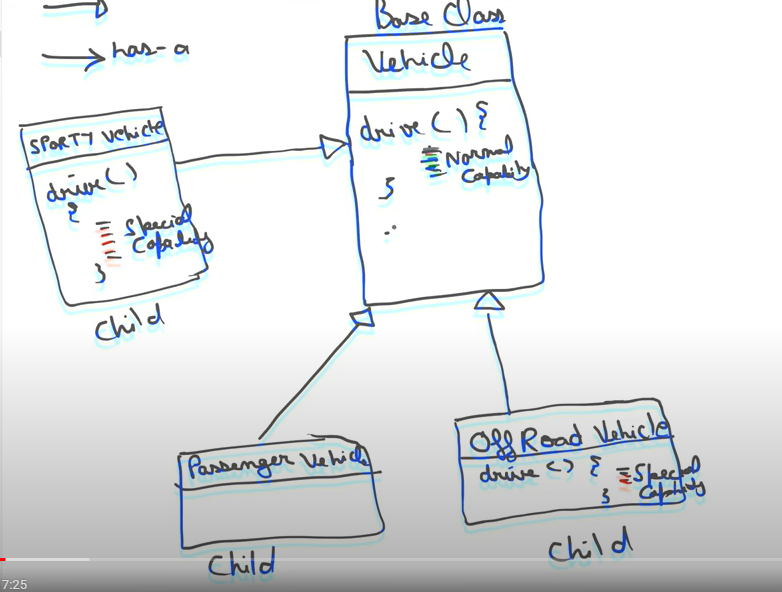 has-a
Base Class
Vehicle
drive () {
Normal
Capability
}
SPORTY Vehicle
drive()
{
Special
Capability
}
Child
Passenger Vehicle
Child
Off Road Vehicle
drive () {
Special
Capability
}
Child
7:25